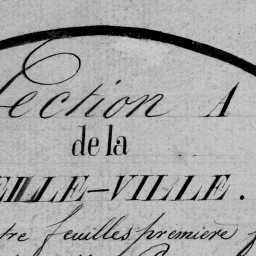 Section A
de la
EILLE-VILLE.
tre feuilles premiere